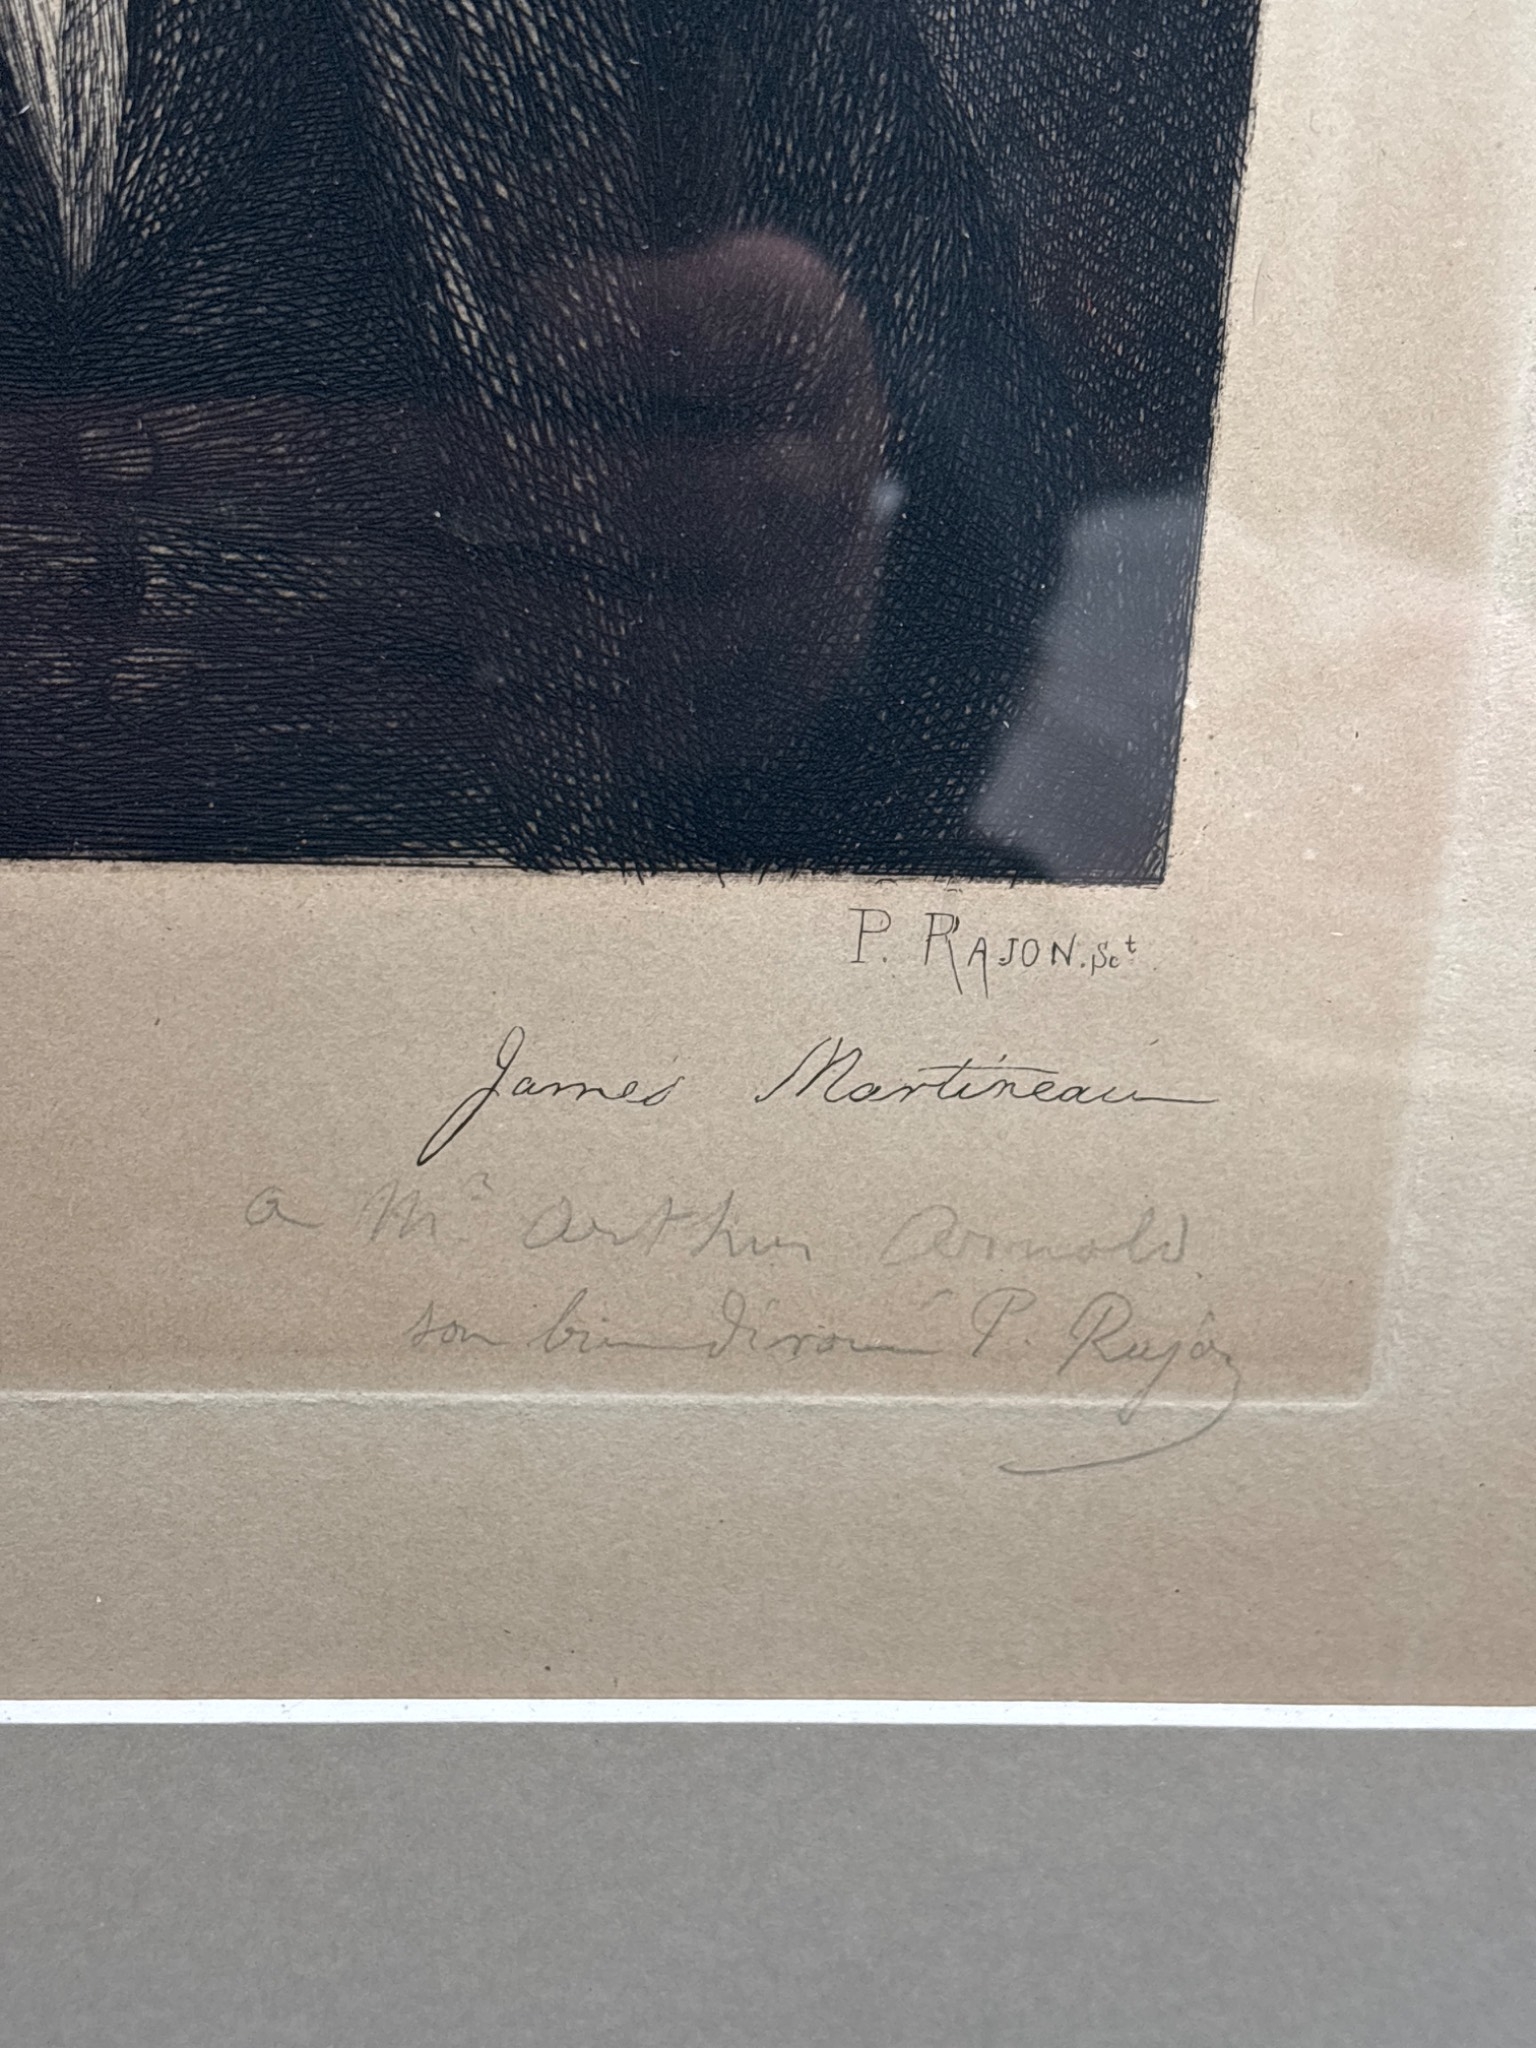 P. RAJON. Sct
James Martineau
a Mr Arthur Arnold
son bien dévoué P. Rajon